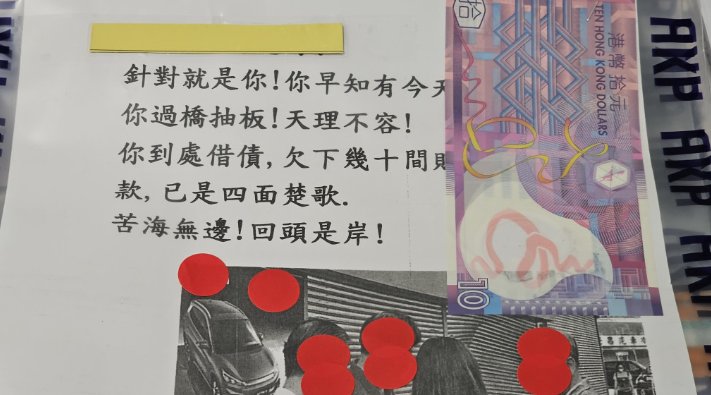 針對就是你!你早知有今
你過橋抽板!天理不容!
你到處借債,欠下幾十間
款,已是四面楚歌.
苦海無邊!回頭是岸!
拾
港幣拾元
TEN HONG KONG DOLLARS
10
AKP
AKP
AKP